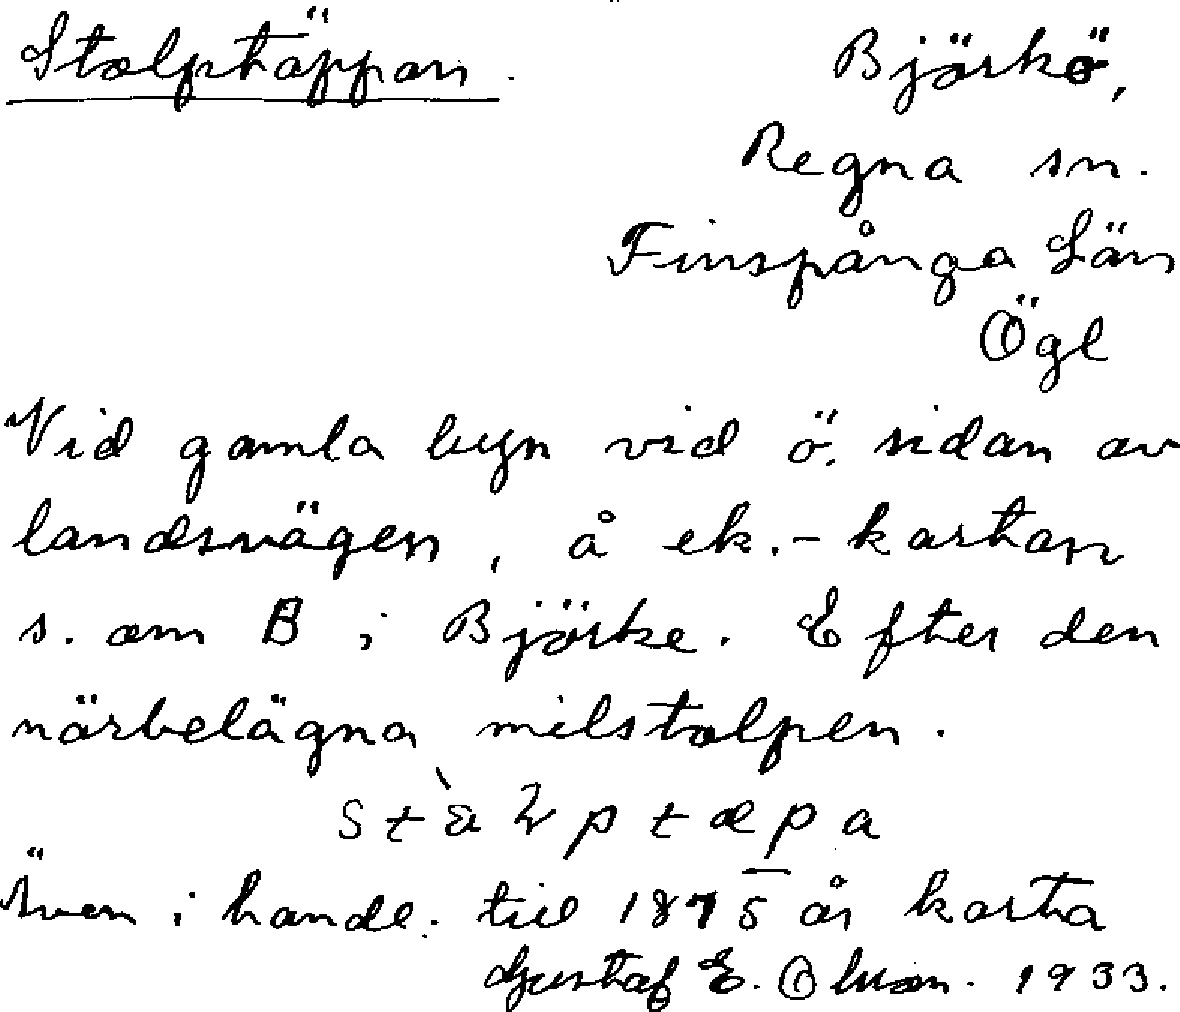 Stolptäppan. Björkö,
Regna sn.
Finspånga Län
Ögl
Vid gamla byn vid ö. sidan av
landsvägen, å ek.-kartan
s. om B i Björke. Efter den
närbelägna milstolpen.
Även i handl. till 1875 års karta
Gustaf E. Olsson. 1933.